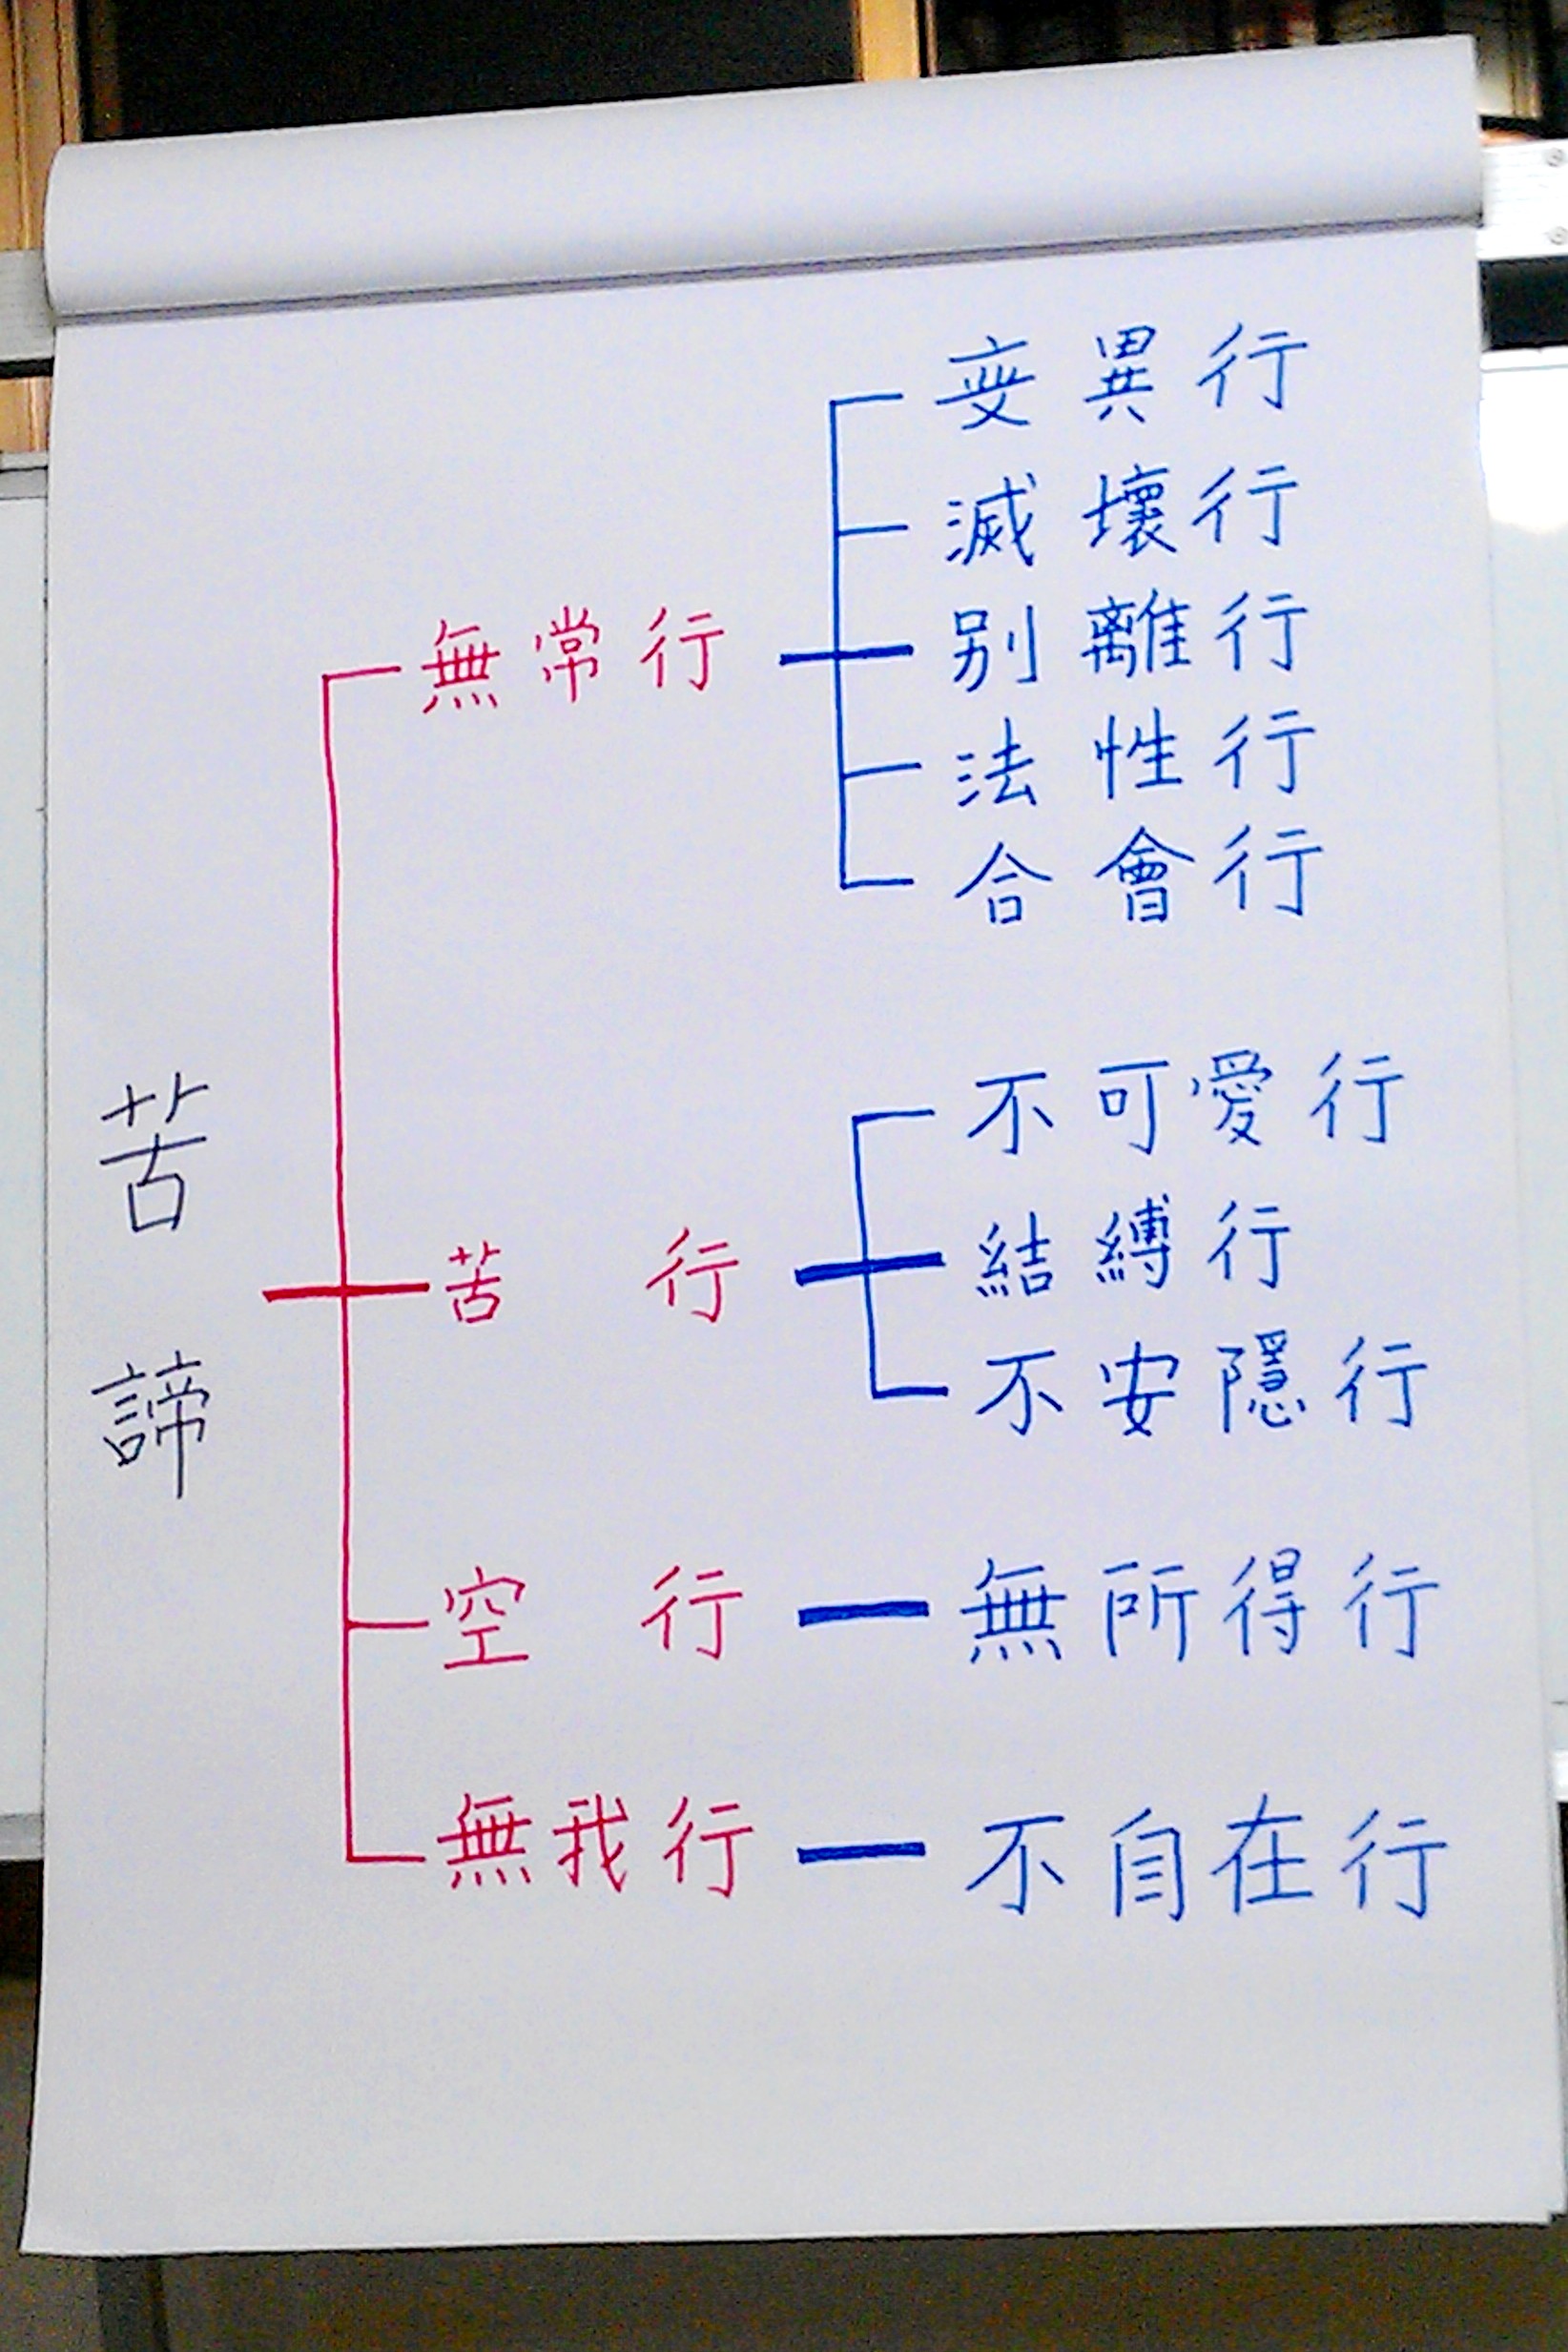 苦諦
無常行
変異行
滅壞行
别離行
法性行
合會行
苦行
不可愛行
結縛行
不安隱行
空行
無所得行
無我行
不自在行